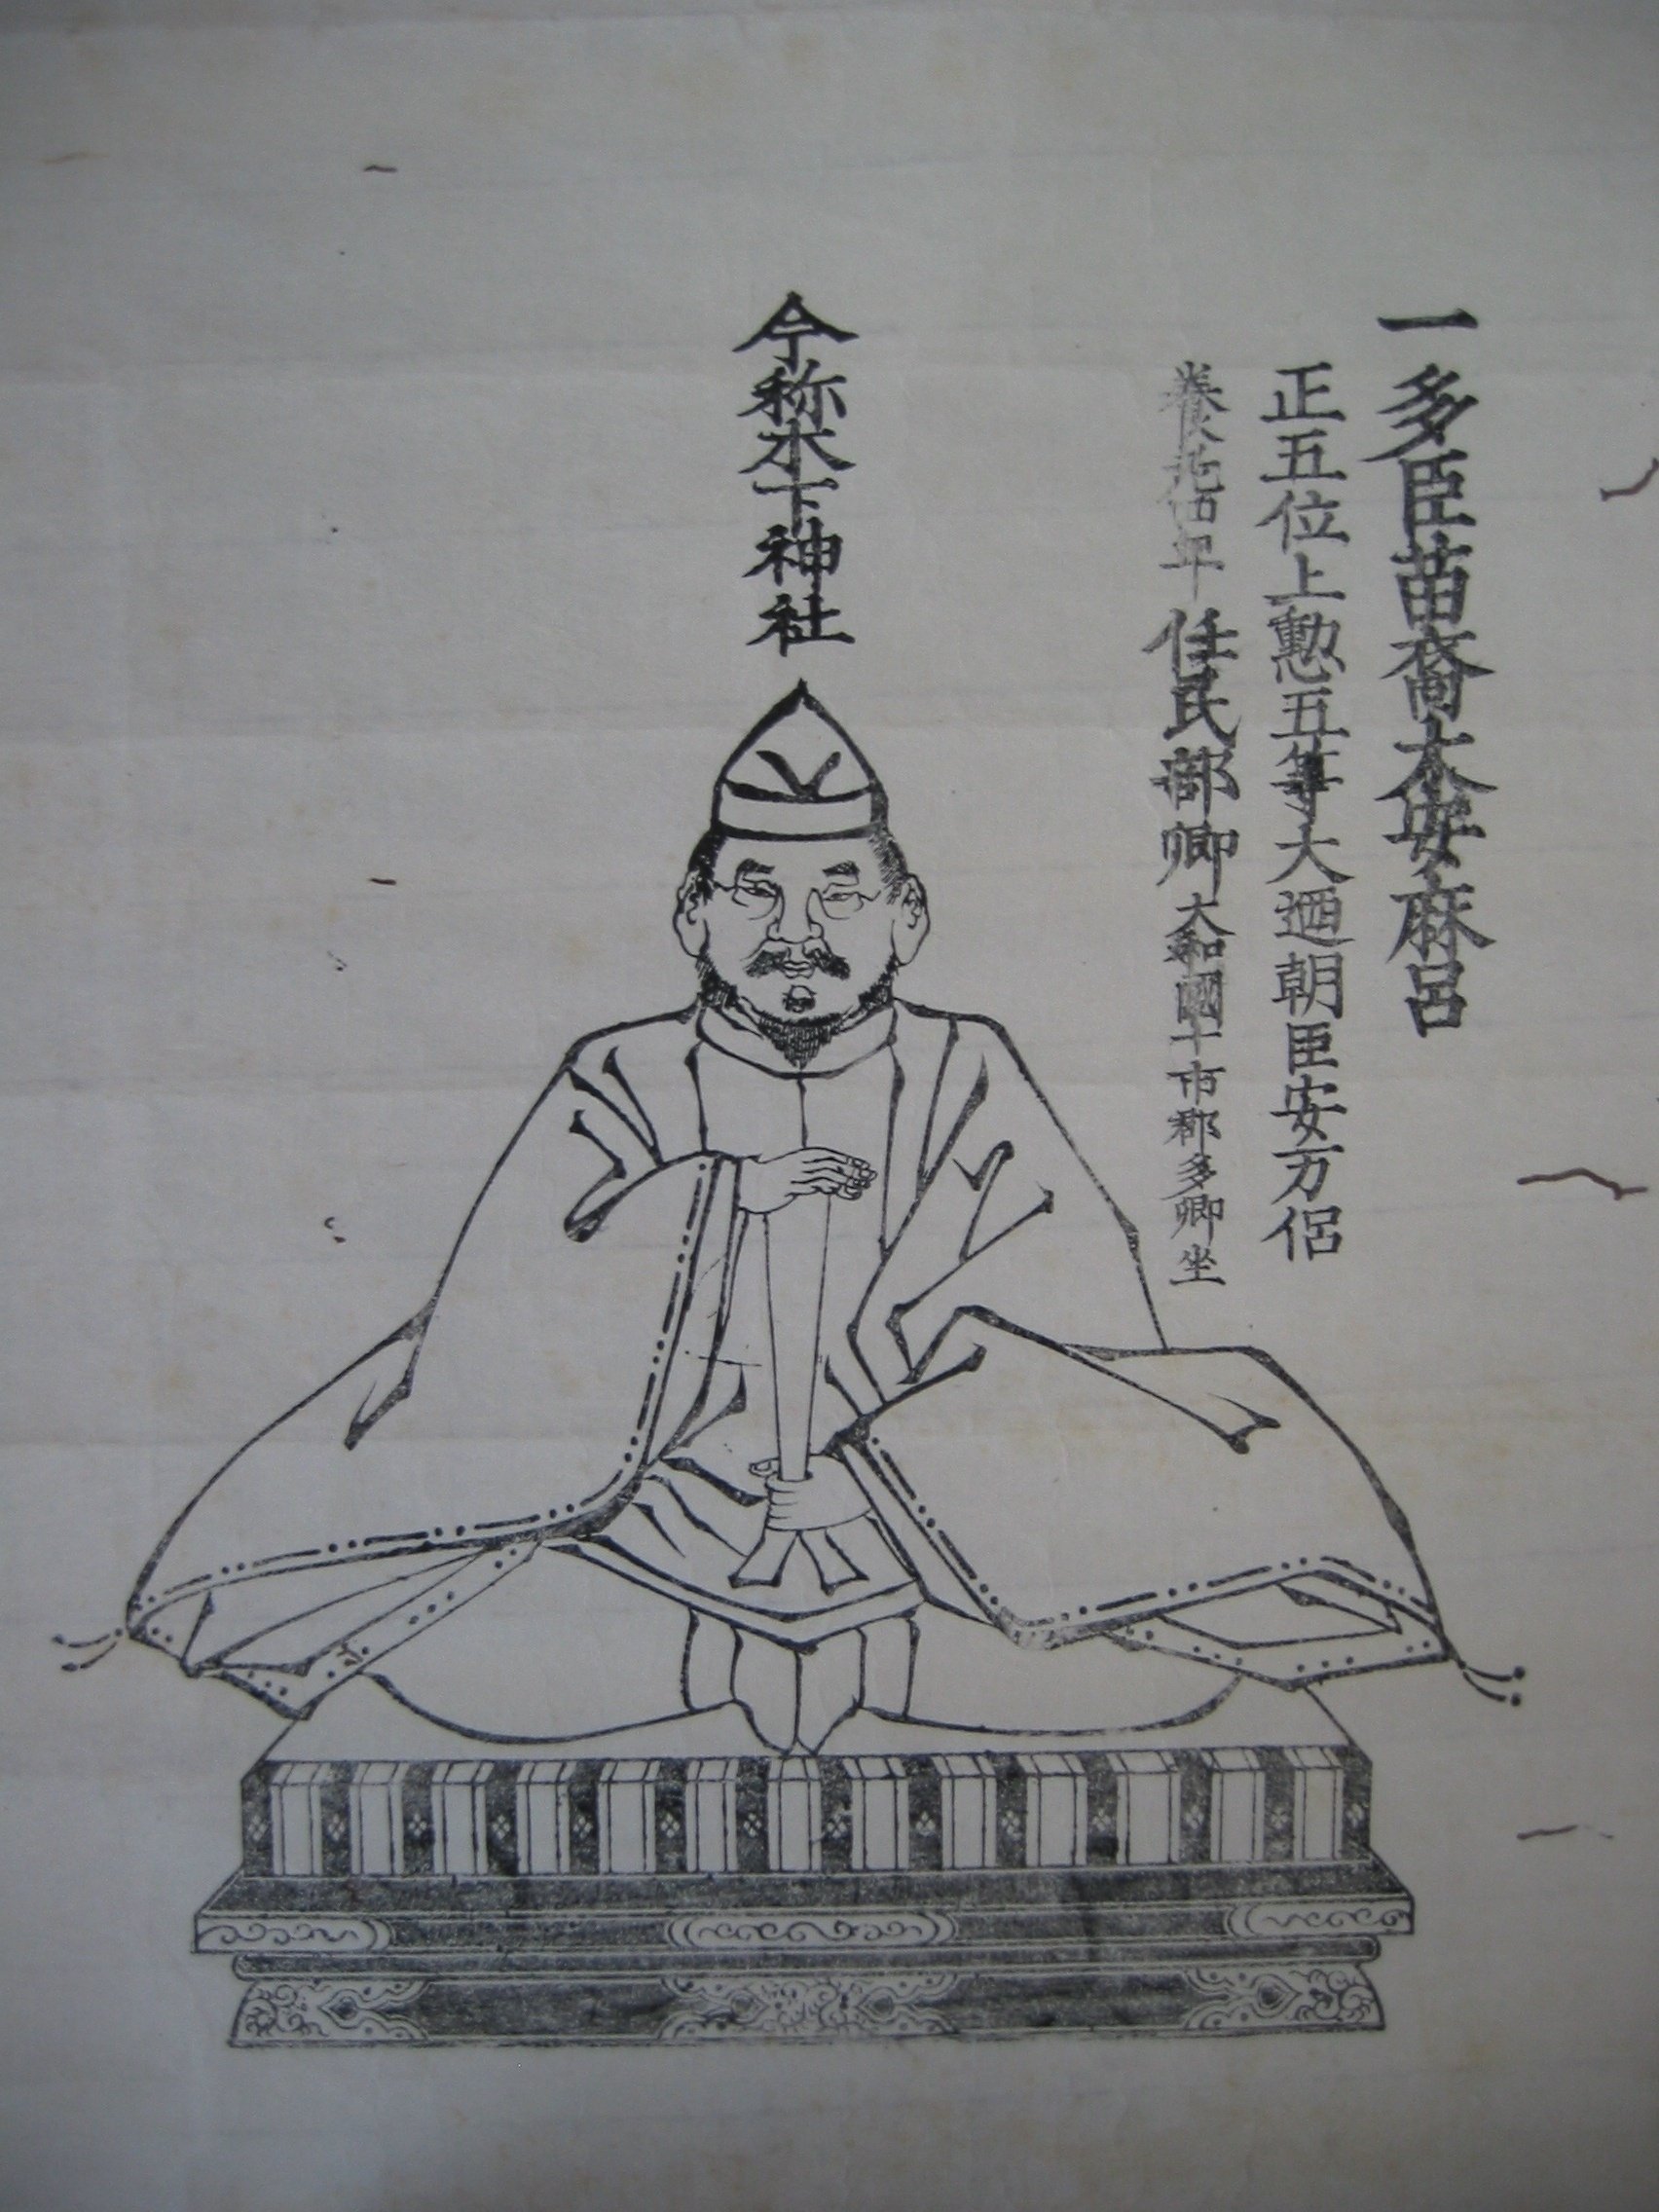 一多臣苗裔太安麻呂
正五位上勲五等大迺朝臣安万侶
養老伍年任民部卿大和國十市郡多卿坐
今称木下神社